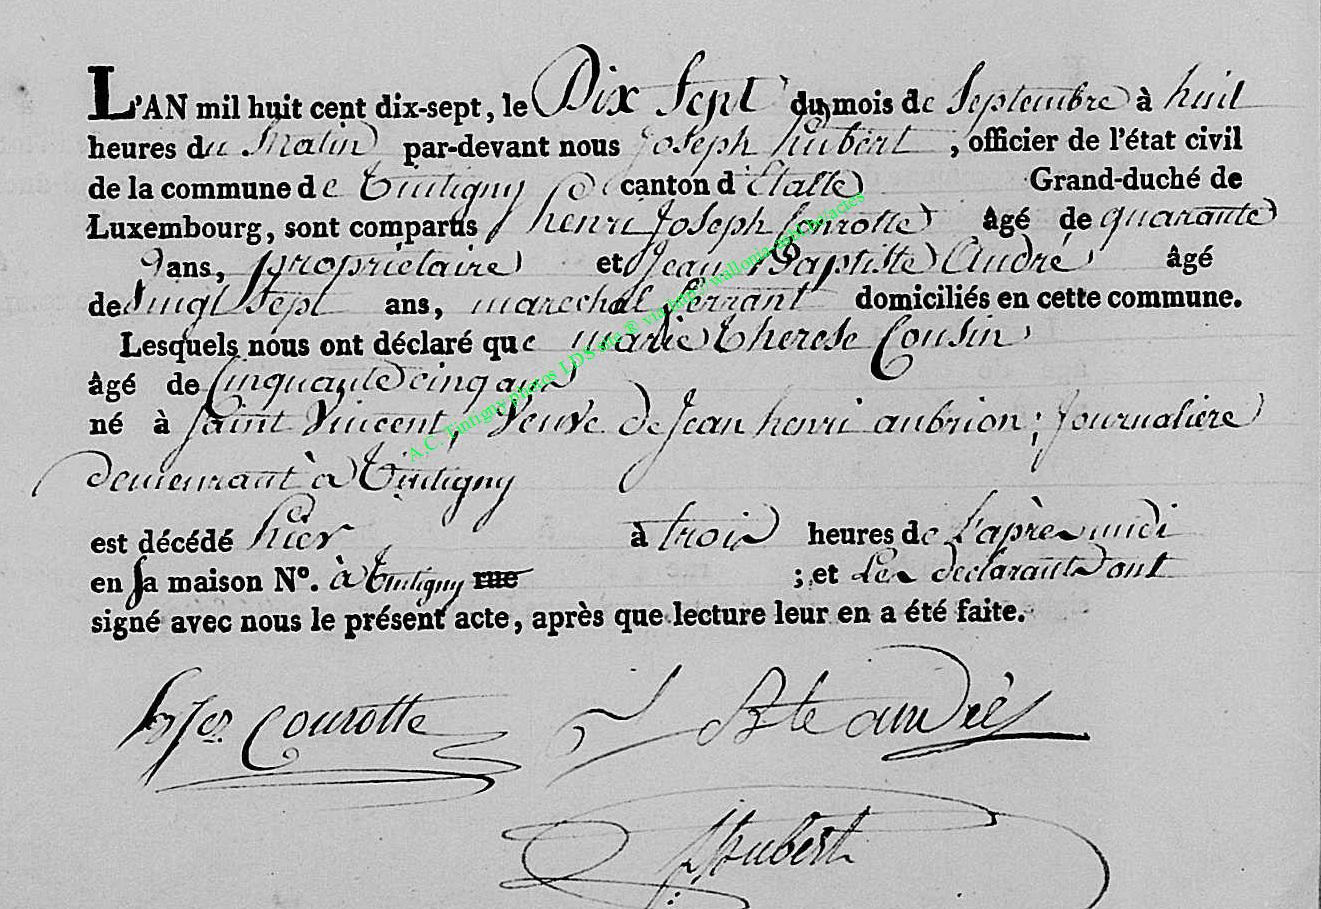 L'AN mil huit cent dix-sept, le Dix Sept du mois de Septembre à huit
heures du Matin par-devant nous Joseph hubert , officier de l'état civil
de la commune de Tintigny canton d'Etalle Grand-duché de
Luxembourg, sont comparus henri Joseph Courotte âgé de quarante
9 ans, propriétaire et Jean Baptiste André âgé
de vingt Sept ans, marechal ferrant domiciliés en cette commune.
Lesquels nous ont déclaré que marie therese Cousin
âgé de Cinquante cinq ans
né à Saint Vincent, veuve de Jean henri aubrion ; Journaliere
demeurant à Tintigny
est décédé hier à trois heures de l'après midi
en sa maison N°. à Tintigny rue ; et Les declarants ont
signé avec nous le présent acte, après que lecture leur en a été faite.
Courotte
J Bte andré
J hubert
A.C. Tintigny photos LDS site ® via http://wallonia-asbl.be/actes